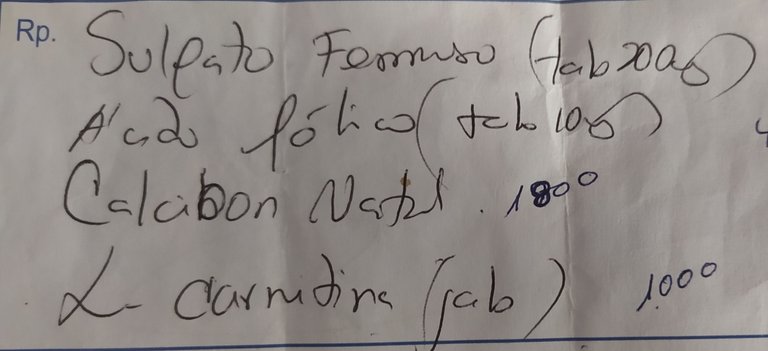 Rp. Sulfato Ferroso (tab 200g)
Ácido fólico (tab 10g)
Calcibon Natal. 1800
L- Carnitina (jab) 1000